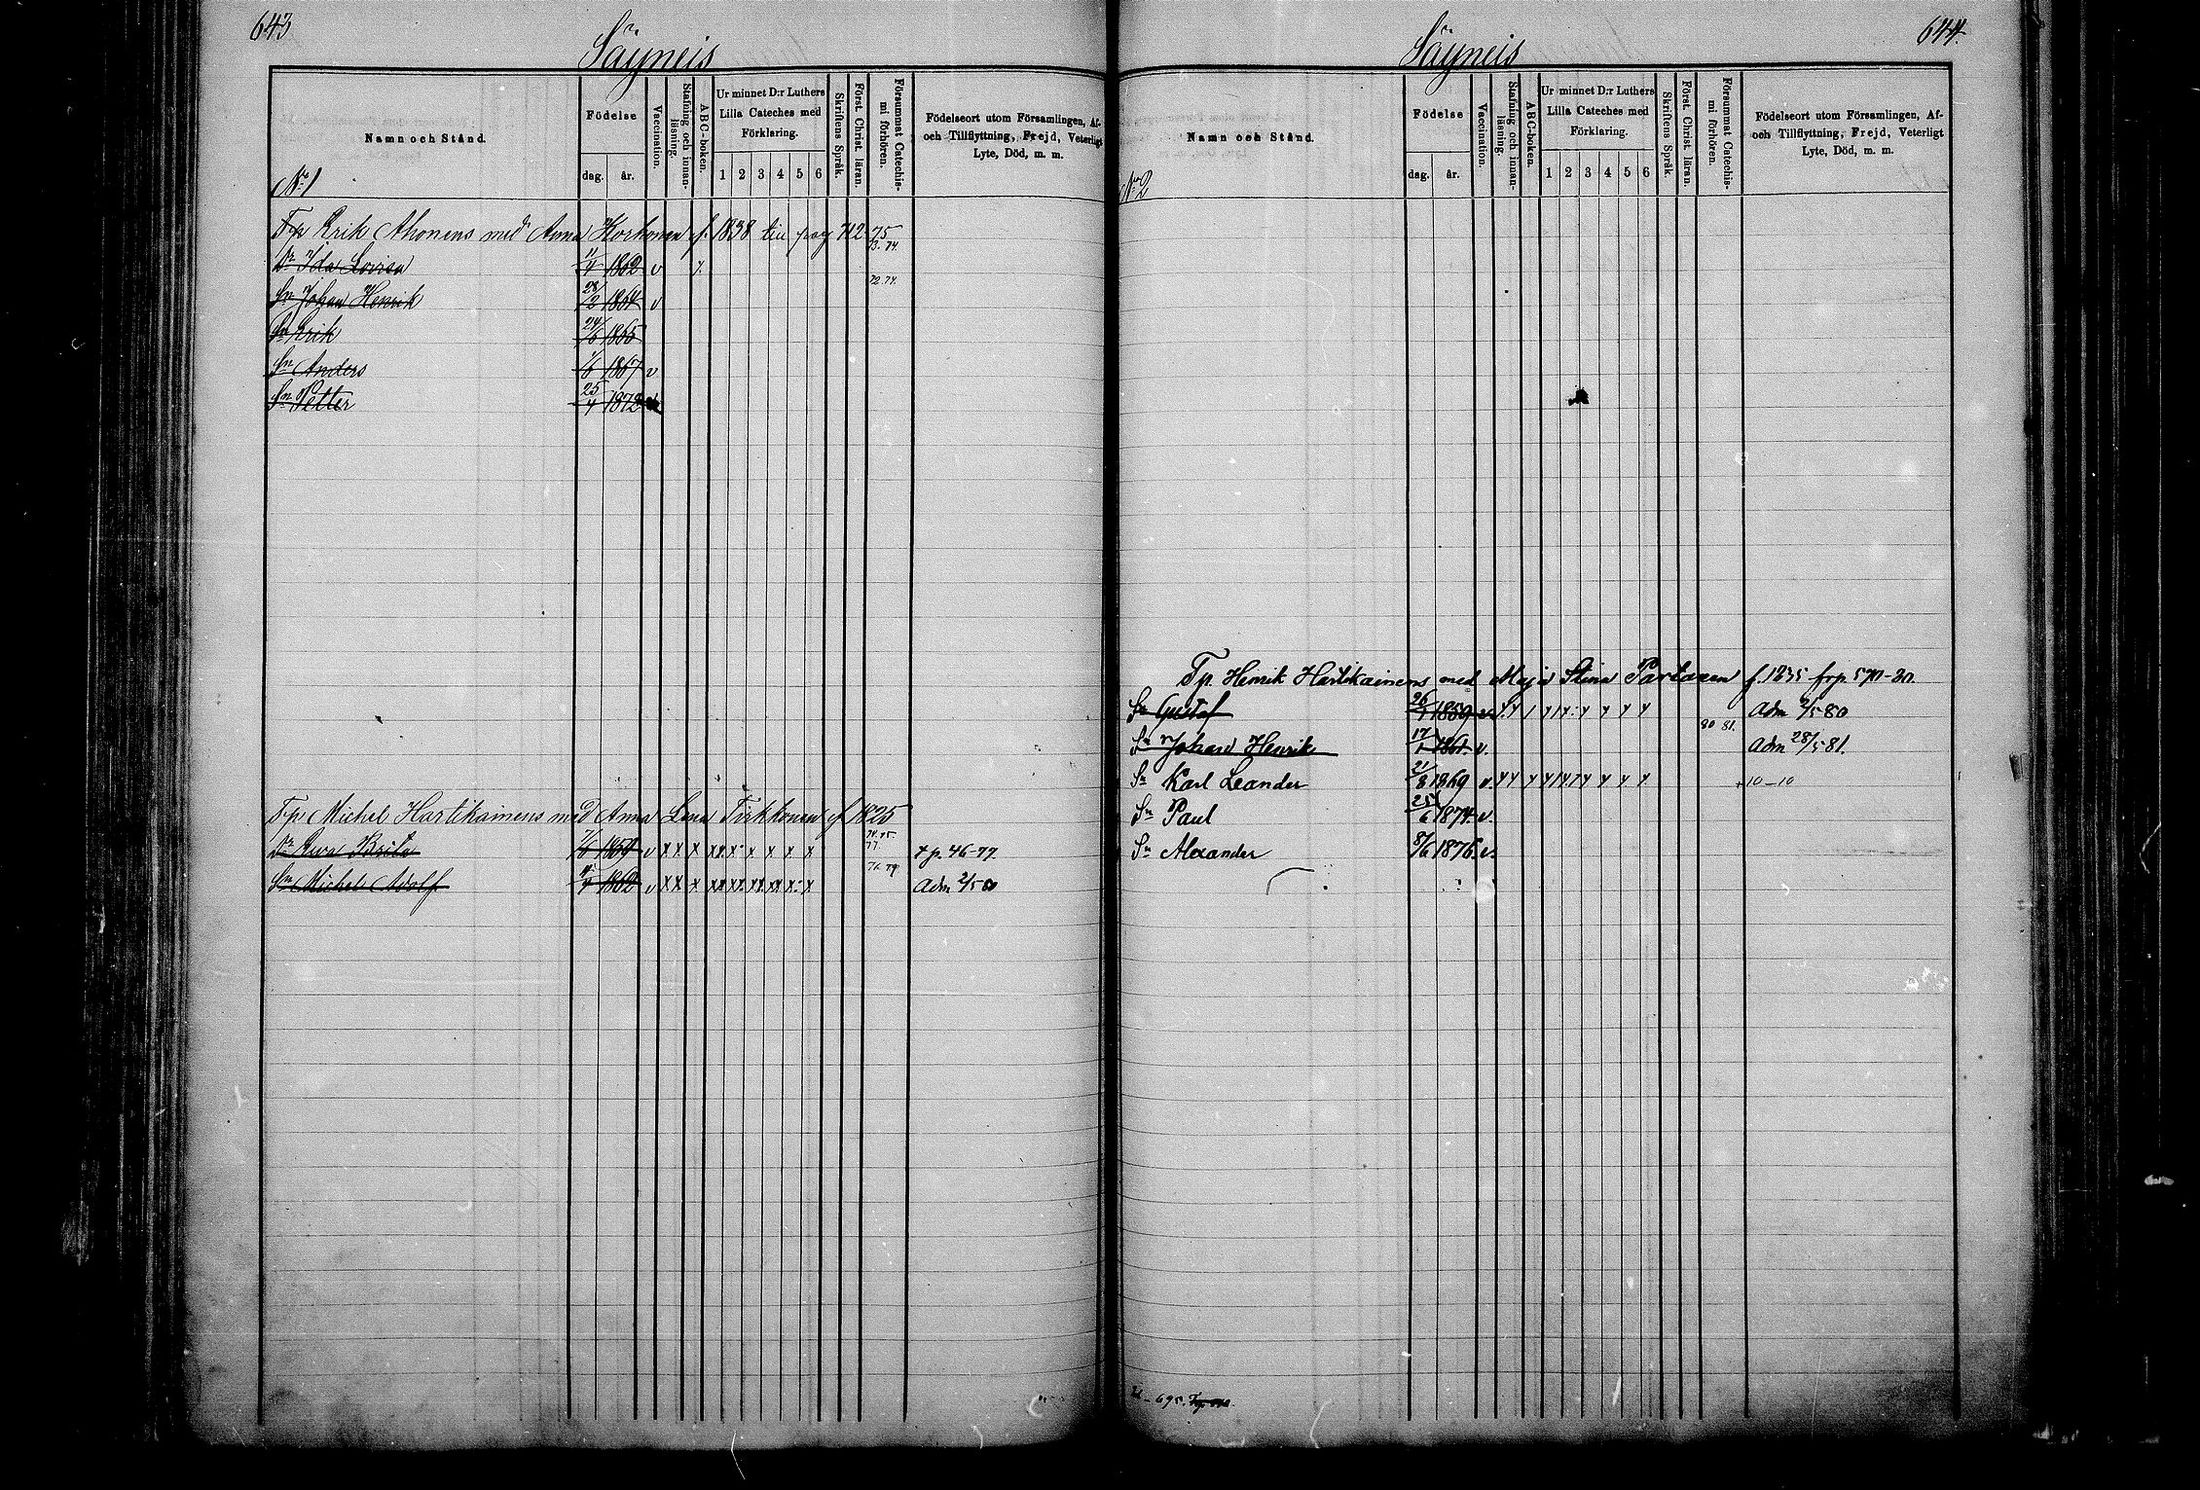 643
Säyneis
Namn och Stånd.
Födelse
dag. år.
Vaccination.
Stafning och innanläsning.
ABC-boken.
Ur minnet D:r Luthers Lilla Cateches med Förklaring.
1 2 3 4 5 6
Skriftens Språk.
Först. Christ. läran.
Försummat Catechismi förhören.
Födelseort utom Församlingen, Af- och Tillflyttning, Frejd, Veterligt Lyte, Död, m. m.
No 1
Tp Erik Ahonens med Anna Korhonen f. 1838 till pag 712 75
Dr Ida Lovisa 1862 v 73. 74
Sn Johan Henrik 28/2 1864 v 72. 74.
Sn Erik 24/6 1865
Sn Anders 1/6 1867 v
Sn Petter 25/4 1872
Tp Michel Hartikainens med Anna Lena Tirkkonen f 1825
Dr Eva Brita 1859 v x x x x x x x x x 74. 75. 77. + p. 46-77.
Sn Michel Adolf 1862 v x x x x x x x x x 76 79 Adm 2/5 80
644.
Säyneis
Namn och Stånd.
Födelse
dag. år.
Vaccination.
Stafning och innanläsning.
ABC-boken.
Ur minnet D:r Luthers Lilla Cateches med Förklaring.
1 2 3 4 5 6
Skriftens Språk.
Först. Christ. läran.
Försummat Catechismi förhören.
Födelseort utom Församlingen, Af- och Tillflyttning, Frejd, Veterligt Lyte, Död, m. m.
No 2
Tp. Henrik Hartikainens med Maja Stina Partanen f. 1835 frp 570-80.
Sn Gustaf 26/1 1859 v Adm 2/5 80
Sn Johan Henrik 17/1 1861 v. 80 81. Adm 28/5 81.
Sn Karl Leander 21/8 1869 v. +10-10
Sn Paul 25/6 1874. v.
Sn Alexander 8/6 1876. v.
695.